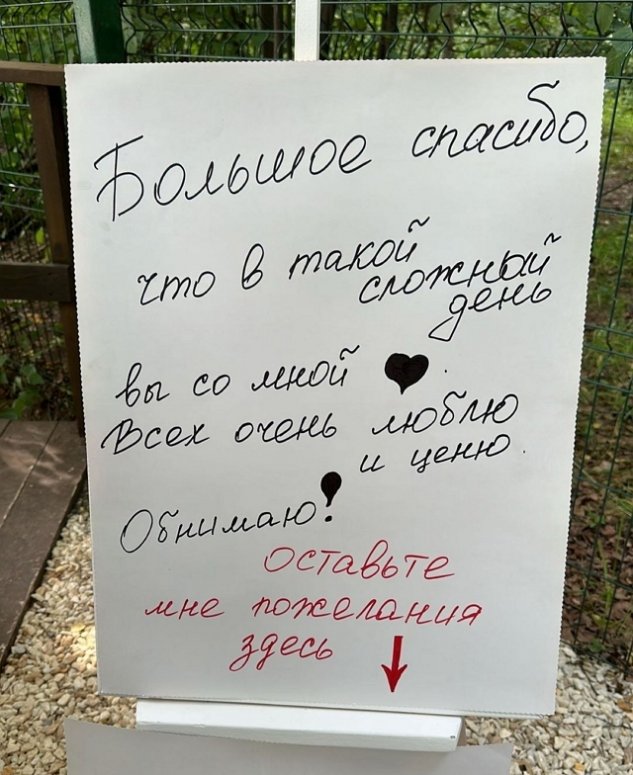 Большое спасибо,
что в такой
сложный
день
вы со мной ♥.
Всех очень люблю
и ценю.
Обнимаю!
оставьте
мне пожелания
здесь ↓